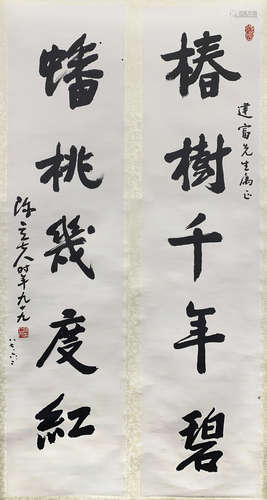 椿樹千年碧
建富先生屬正
蟠桃幾度紅
陳立夫時年九十九